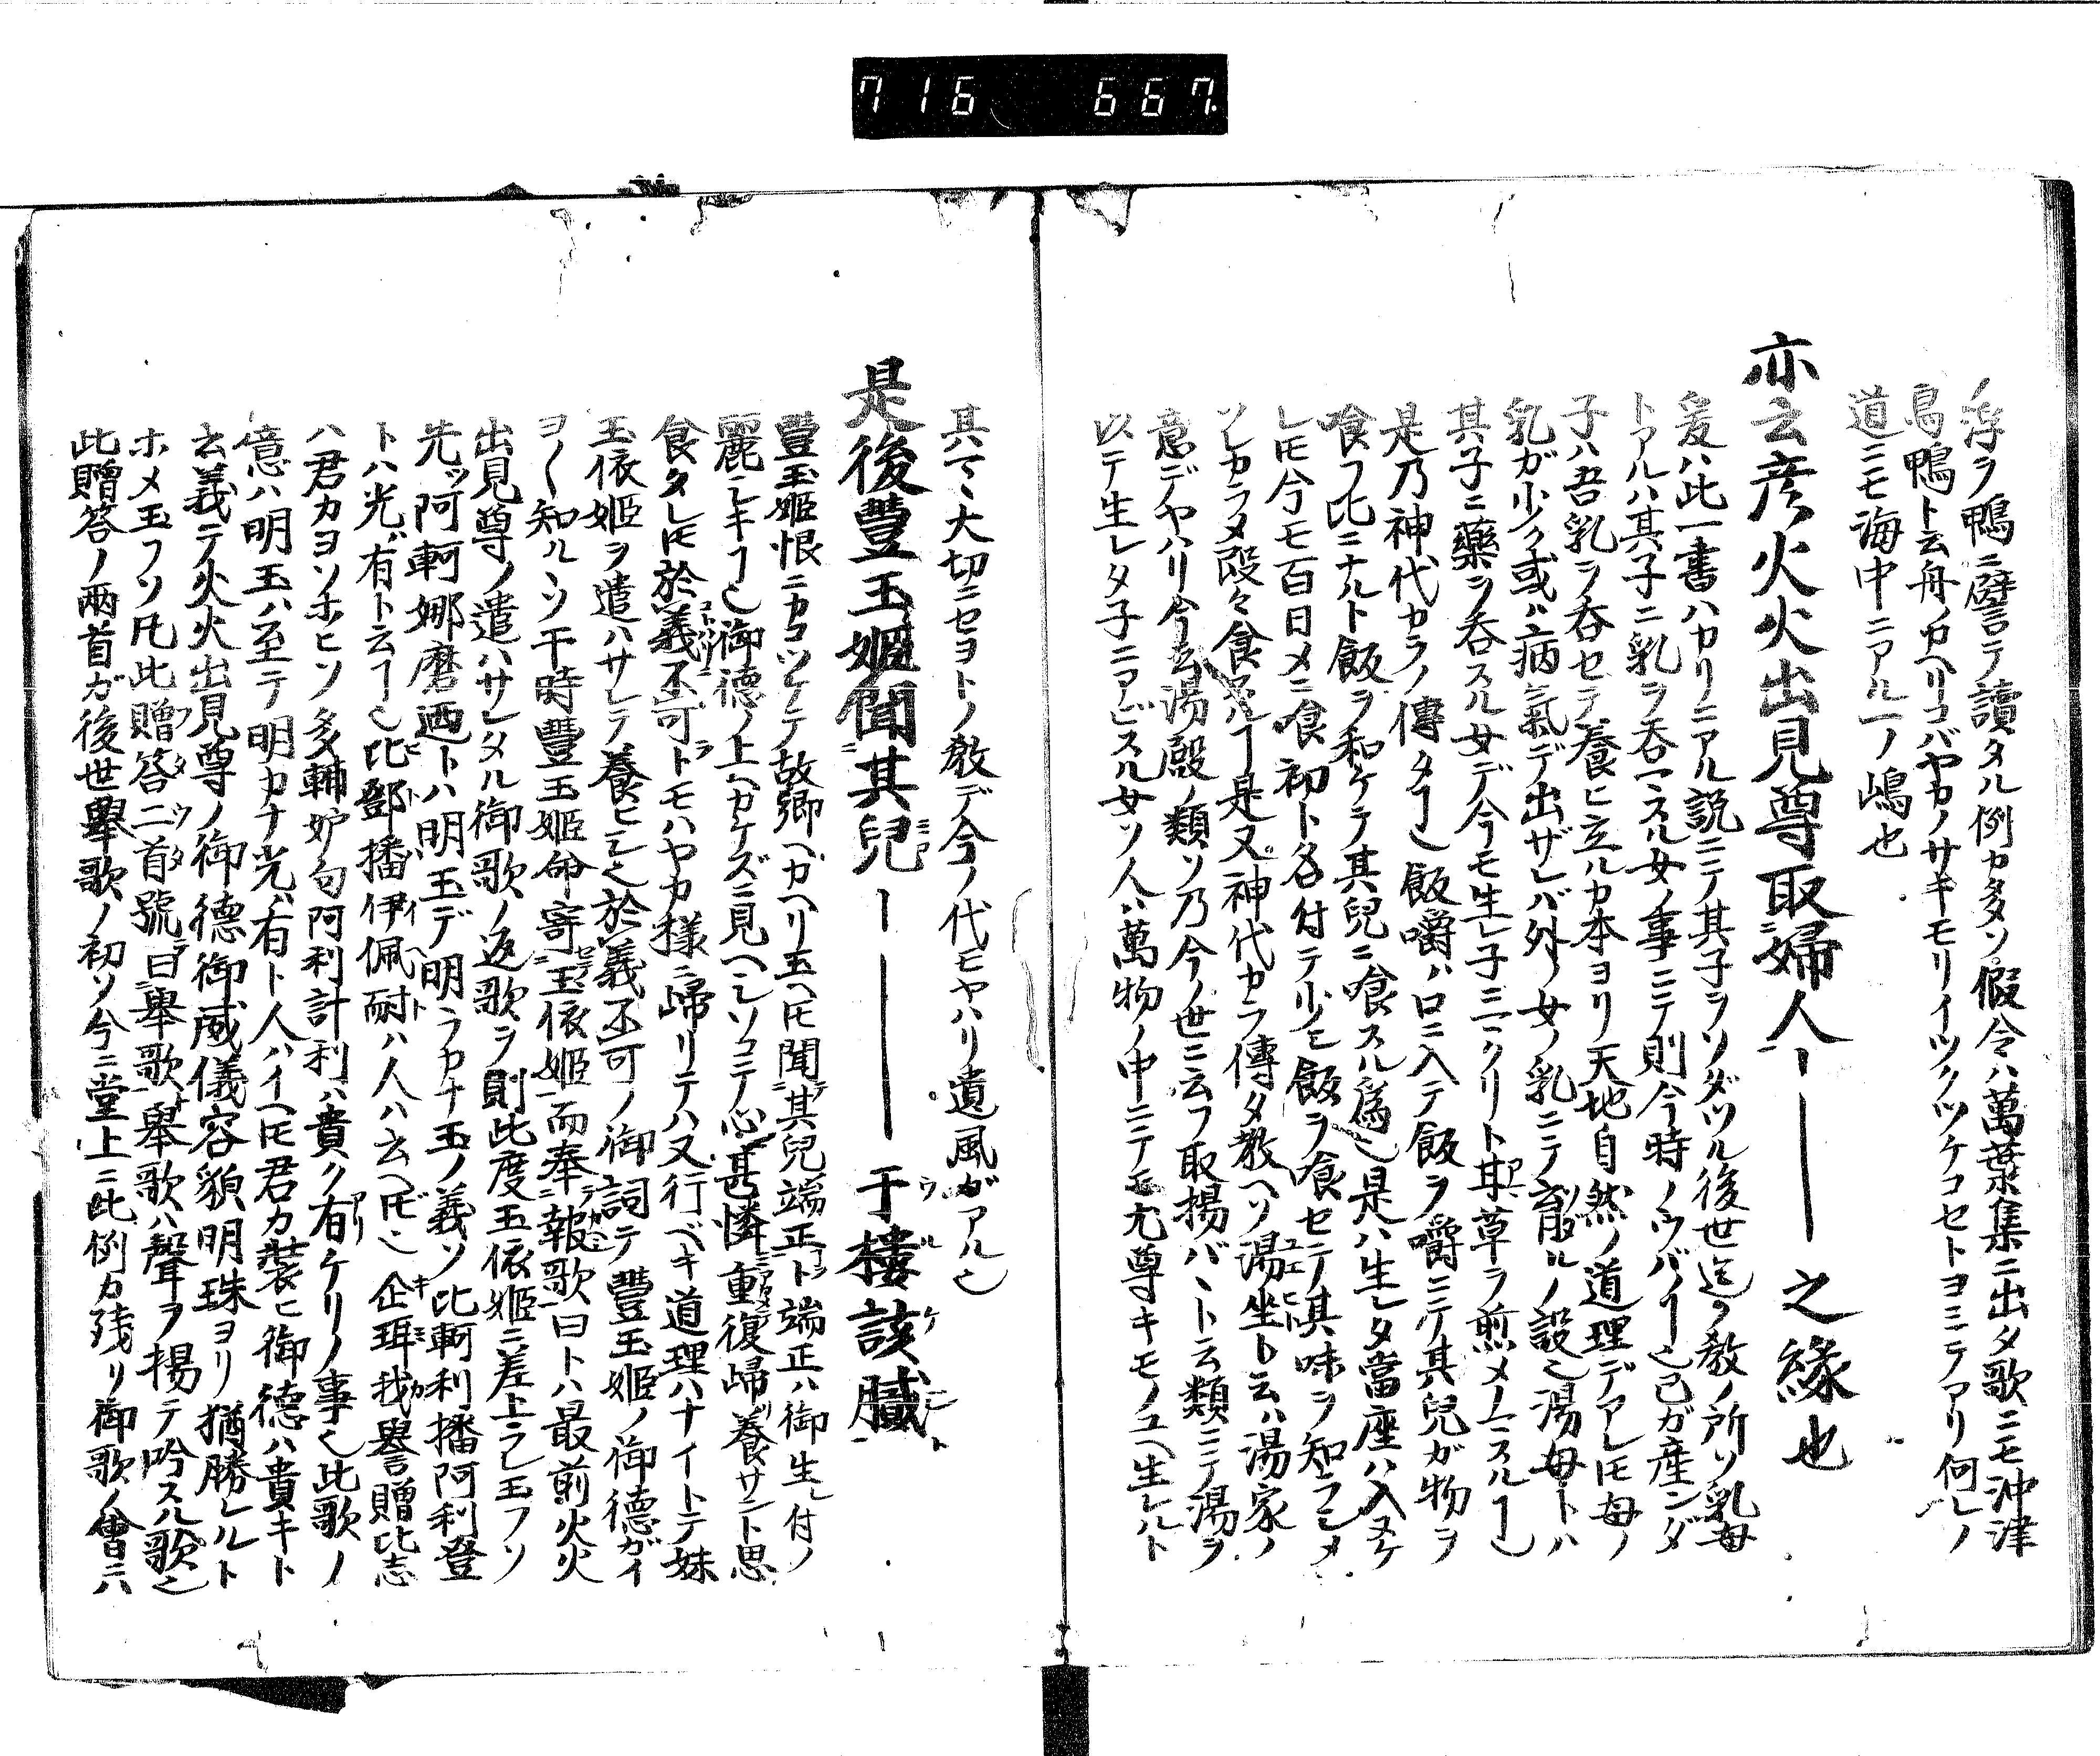 716 667
ノ浮ヲ鴨ニ譬テ讀タル例カ多ソ假令ハ萬葉集ニ出タ歌ニモ沖津
鳥鴨ト云舟ノカヘリコバヤカノサキモリイツクツケコセトヨミテアリ何レノ
道ニモ海中ニアル一ノ嶋也
亦云彦火火出見尊取婦人ー之縁也
爰ハ此一書ハカリニアル説ニテ其子ヲソダツル後世迄ヲ教ノ所ソ乳母
トアルハ其子ニ乳ヲ呑マスル女ノ事ニテ則今時ノウバノヿ也己ガ産ンダ
子ハ吾乳ヲ呑セテ養ヒ立ルカ本ヨリ天地自然ノ道理デアレ𪜈母ノ
乳ガ少ク或ハ病氣デ出ザレバ外ノ女ノ乳ニテ育ルノ設也湯母トハ
其子ニ藥ヲ呑スル女デ今モ生レ子ニマクリト甘草ヲ煎メノマスルヿ也
是乃神代カラノ傳タヿ也飯嚼ハ口ニ入テ飯ヲ嚼ニテ其兒ガ物ヲ
喰フ比ニナルト飯ヲ和ケテ其兒ニ喰スル爲也是ハ生レタ當座ハ入ヌケ
レ𪜈今モ百日メニ食初ト名付テ少モ飯ヲ喰セテ其味ヲ知ラシメ
ソレカラ段々食スルヿ是又神代カラ傳タ教ヘソ湯坐ト云ハ湯家ノ
意デヤハリ今云湯殿ノ類ソ乃今ノ世ニ云フ取揚バヽト云類ニテ湯ヲ
以テ生レタ子ニアビスル女ソ人ハ萬物ノ中ニテモ尤尊キモノユヘ生レルト
其マヽ大切ニセヨトノ教デ今ノ代モヤハリ遺風ガアル也
是後豐玉姫聞其兒ー于樓該膩
豐玉姫恨ニカコツケテ故郷ヘカヘリ玉ヘ𪜈聞其兒端正ト端正ハ御生レ付ノ
麗シキヿ也御德ノ上ヘカケズニ見ヘシソコニテ心甚憐重復歸養サント思
食タレ𪜈於義不可トモハヤカ樣ニ歸リテハ又行ベキ道理ハナイトテ妹
玉依姫ヲ遣ハサレテ養ヒシ也於義不可ノ御詞テ豐玉姫ノ御德ガイ
ヨ〱知ルソ于時豐玉姫命寄玉依姫而奉報歌曰トハ最前火火
出見尊ノ遣ハサレタル御歌ノ返歌ヲ則此度玉依姫ニ差上ラレ玉フソ
先ツ阿軻娜磨廼トハ明玉デ明ラカナ玉ノ義ソ比軻利播阿利登
トハ光ハ有ト云ヿ也比鄧播伊佩耐ハ人ハ云ヘ𪜈也企珥我譽贈比志
ハ君カヨソホヒソ多輔妒勾阿利計利ハ貴ク有ケリノ事也此歌ノ
意ハ明玉ハ至テ明カナ光ハ有ト人ハイヘ𪜈君カ裝ヒ御德ハ貴キト
云義テ火火出見尊ノ御德御威儀容貌明珠ヨリ猶勝レルト
ホメ玉フソ凡此贈答二首號曰擧歌擧歌ハ聲ヲ揚テ吟スル歌也
此贈答ノ兩首ガ後世擧歌ノ初ソ今ニ堂上ニ此例カ殘リ御歌ノ會ニハ